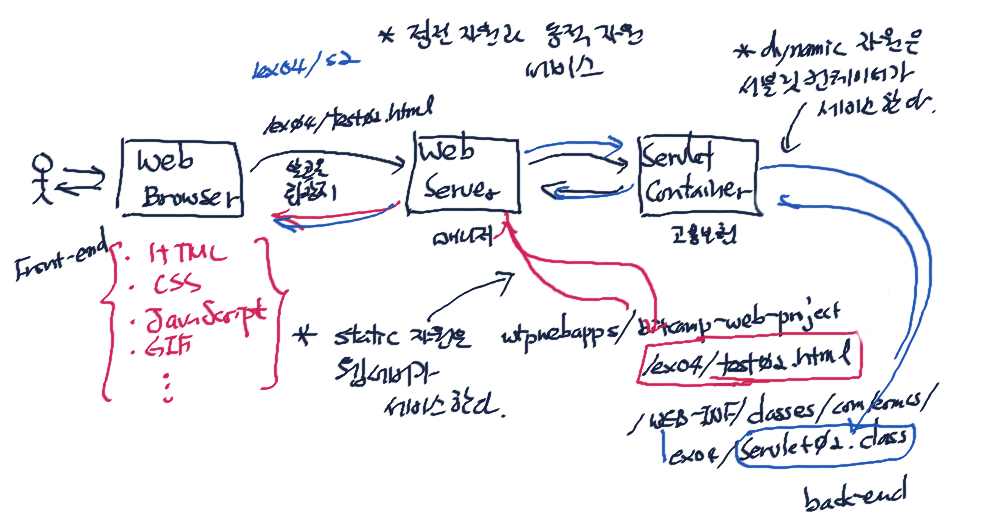 * 정적 자원과 동적 자원
서비스
/ex04/s2
* dynamic 자원은
서블릿 컨테이너가
서비스 한다.
/ex04/test02.html
Web
Browser
Web
Server
매니저
Servlet
Container
Front-end
· HTML
· CSS
· JavaScript
· GIF
* static 자원은
웹서버가
서비스한다.
wtpwebapps/bitcamp-web-project
/ex04/test02.html
/WEB-INF/classes/com/eomcs/
ex04/Servlet02.class
back-end